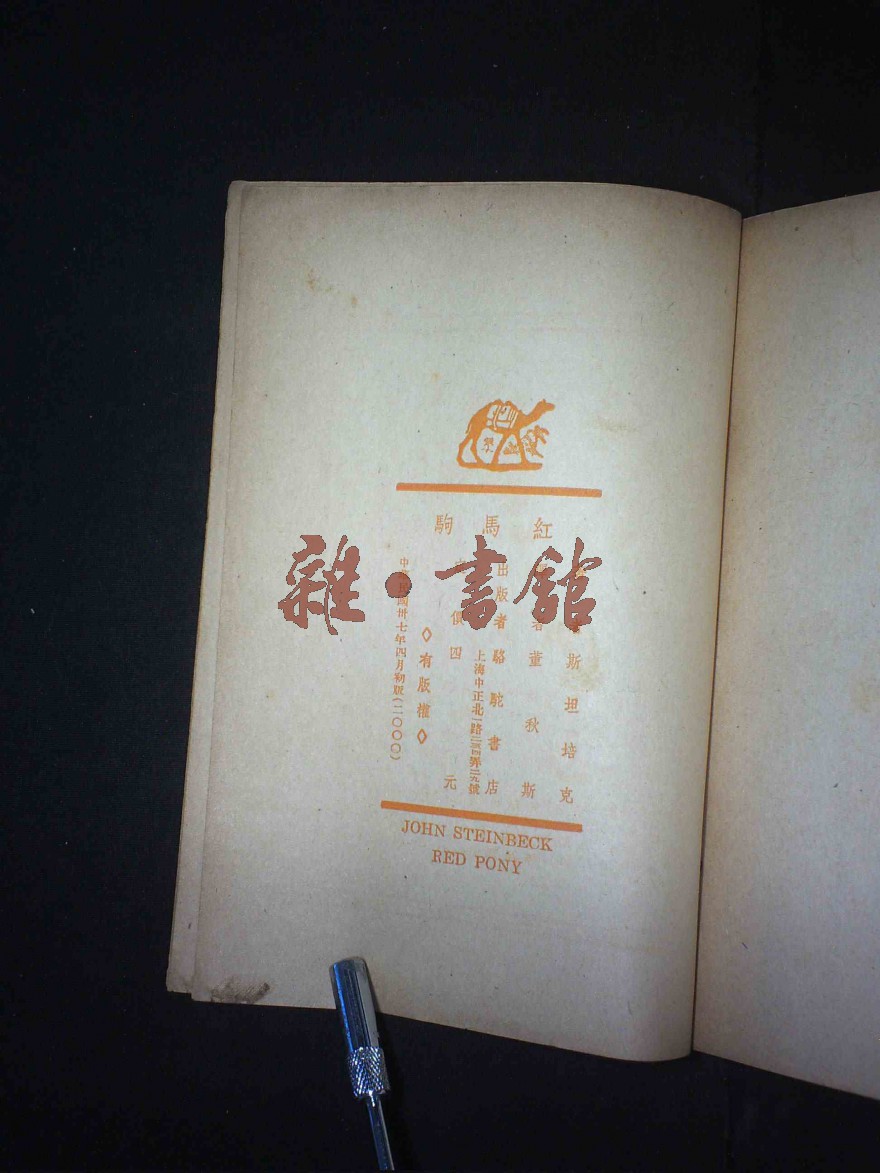 紅馬駒
斯坦培克
董秋斯
出版者 駱駝書店
上海中正北一路
號
價四元
◇有版權◇
中 國卅七年四月初版(二〇〇〇)
JOHN STEINBECK
RED PONY
雜·書館